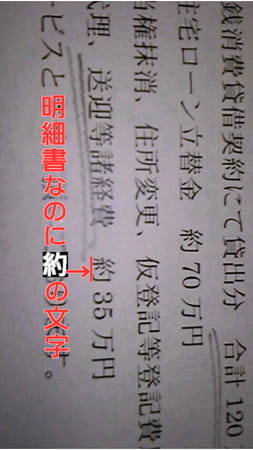 銭消費貸借契約にて貸出分　合計120
住宅ローン立替金　約70万円
当権抹消、住所変更　仮登記等登記費
代理、送迎等諸経費　約35万円
ービスと
明細書なのに約の文字